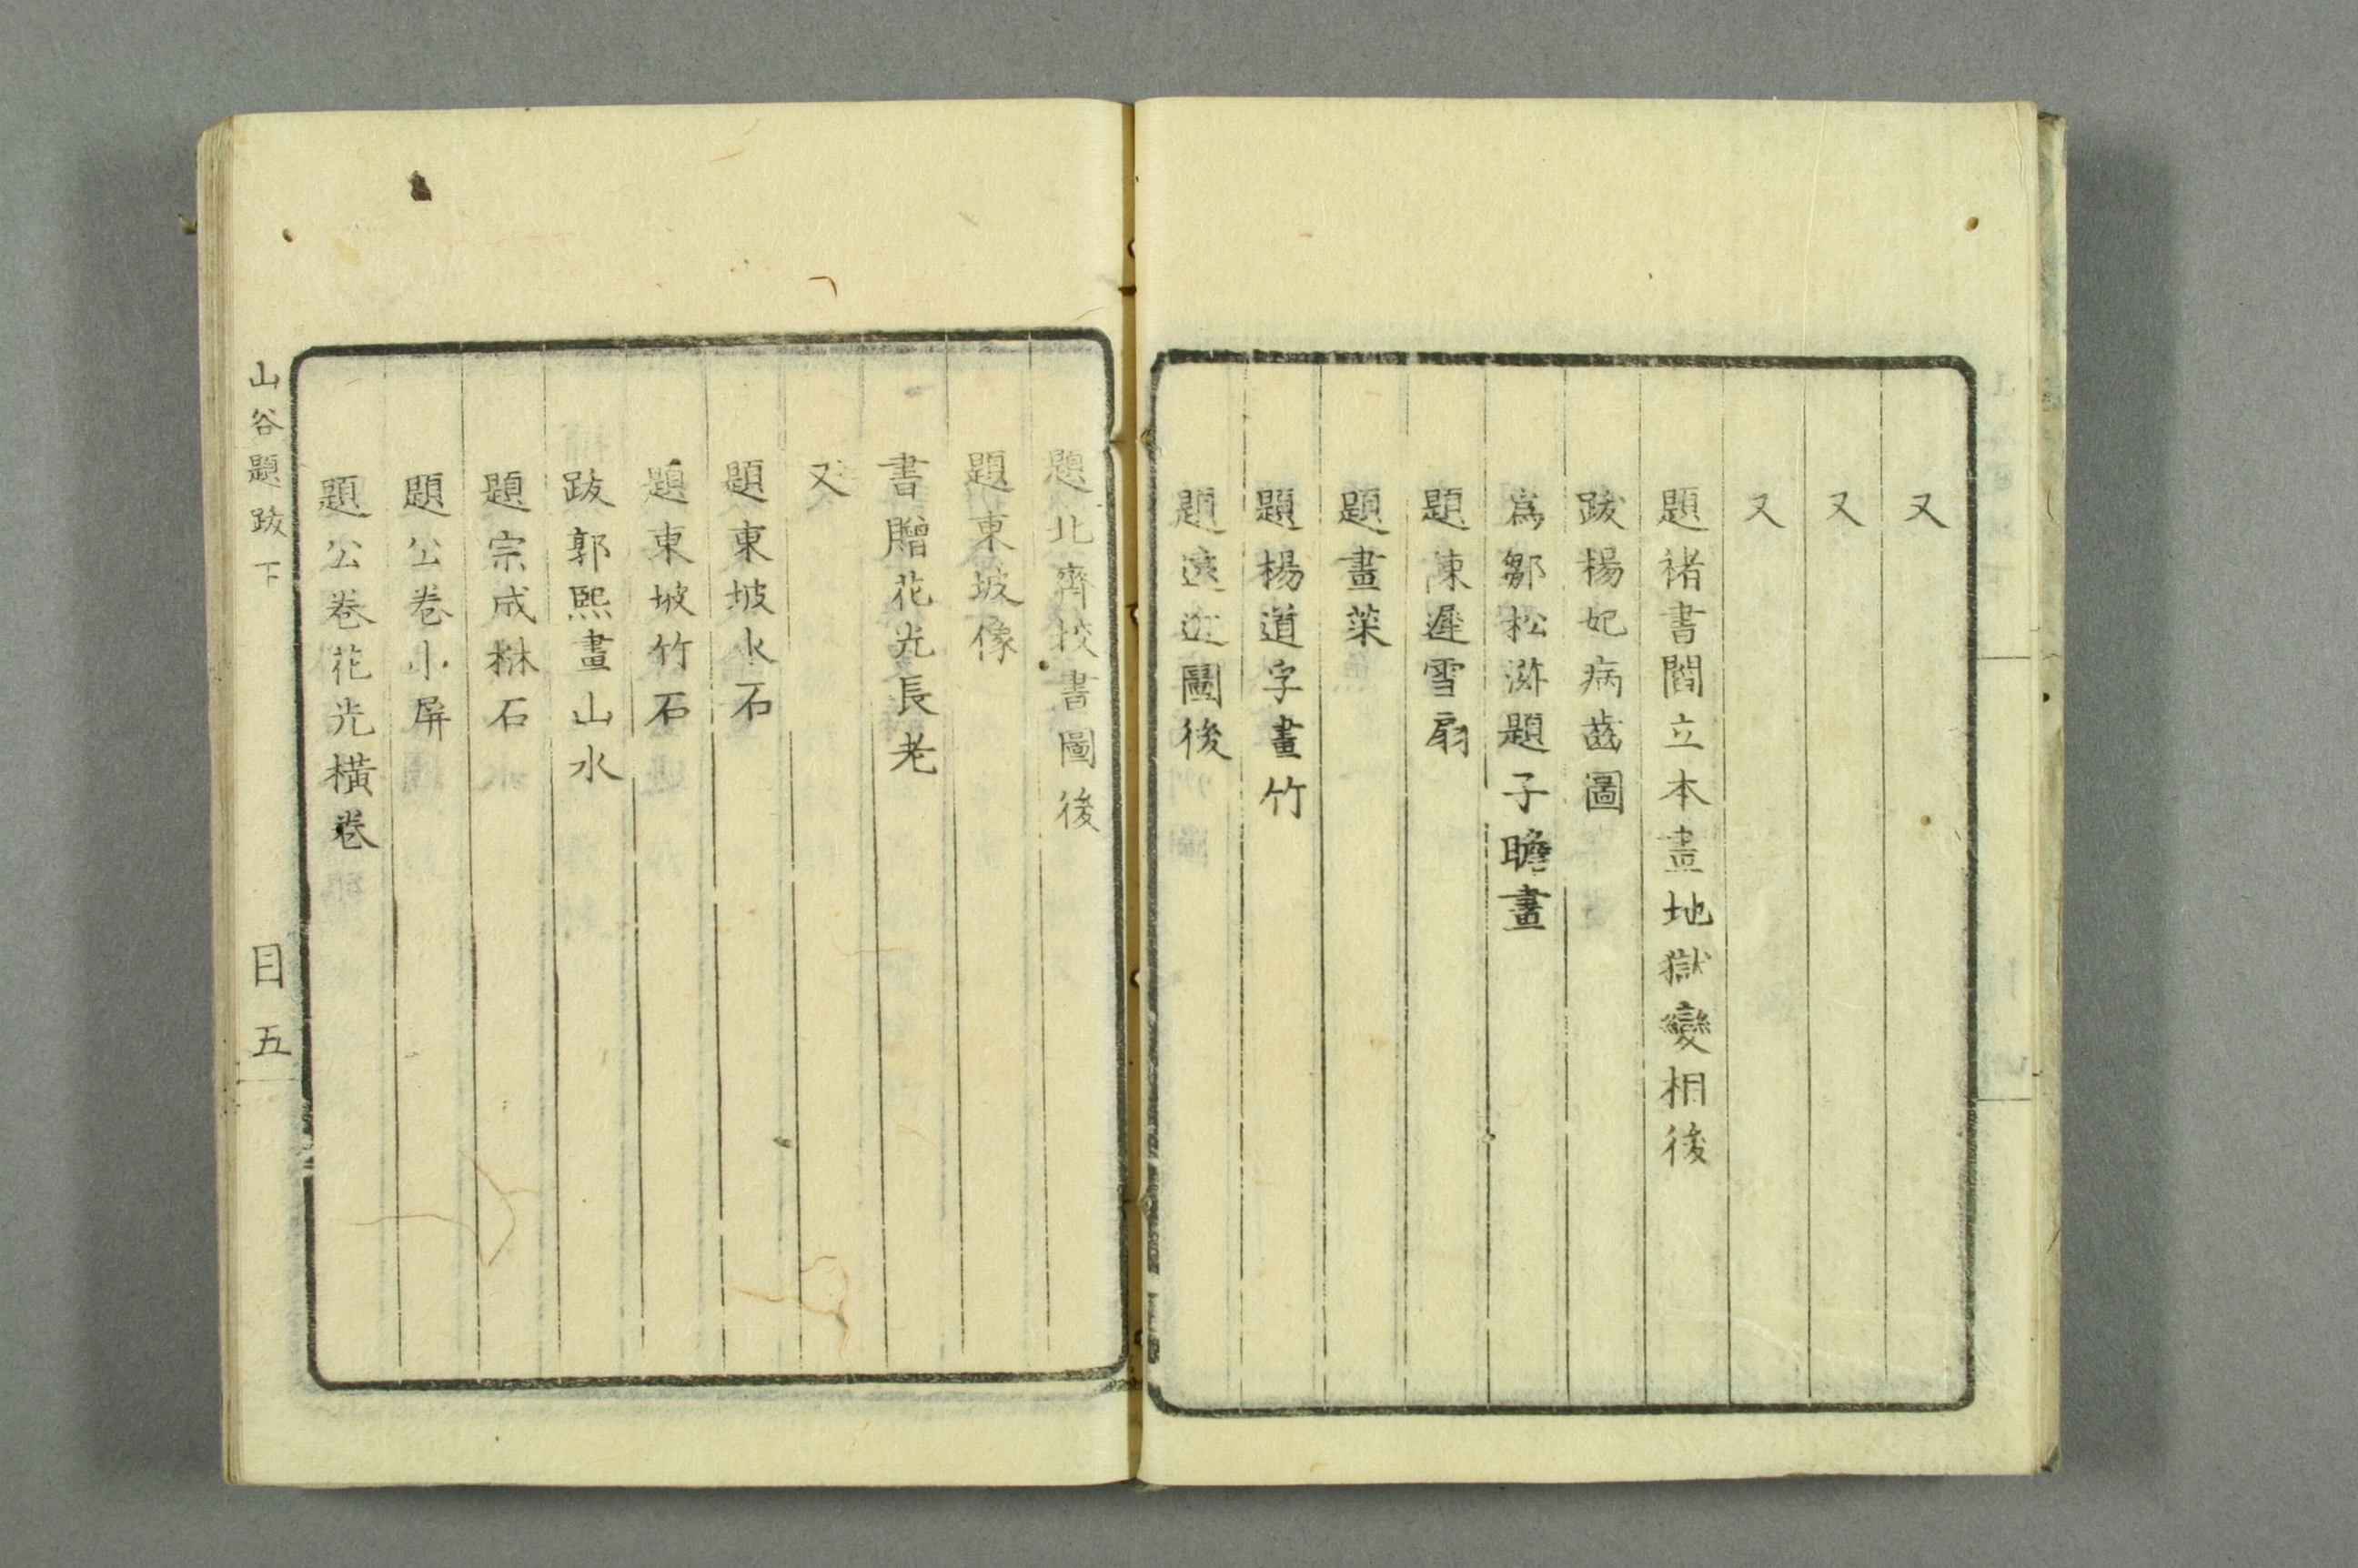 又
又
又
題褚書閻立本畫地獄變相後
跋楊妃病齒圖
爲鄒松滋題子瞻畫
題陳遲雪扇
題畫菜
題楊道孚畫竹
題遠近圖後
題北齊挍書圖後
題東坡像
書贈花光長老
又
題東坡水石
題東坡竹石
跋郭熙畫山水
題宗成樹石
題公卷小屏
題公卷花光橫卷
山谷題跋下
目五